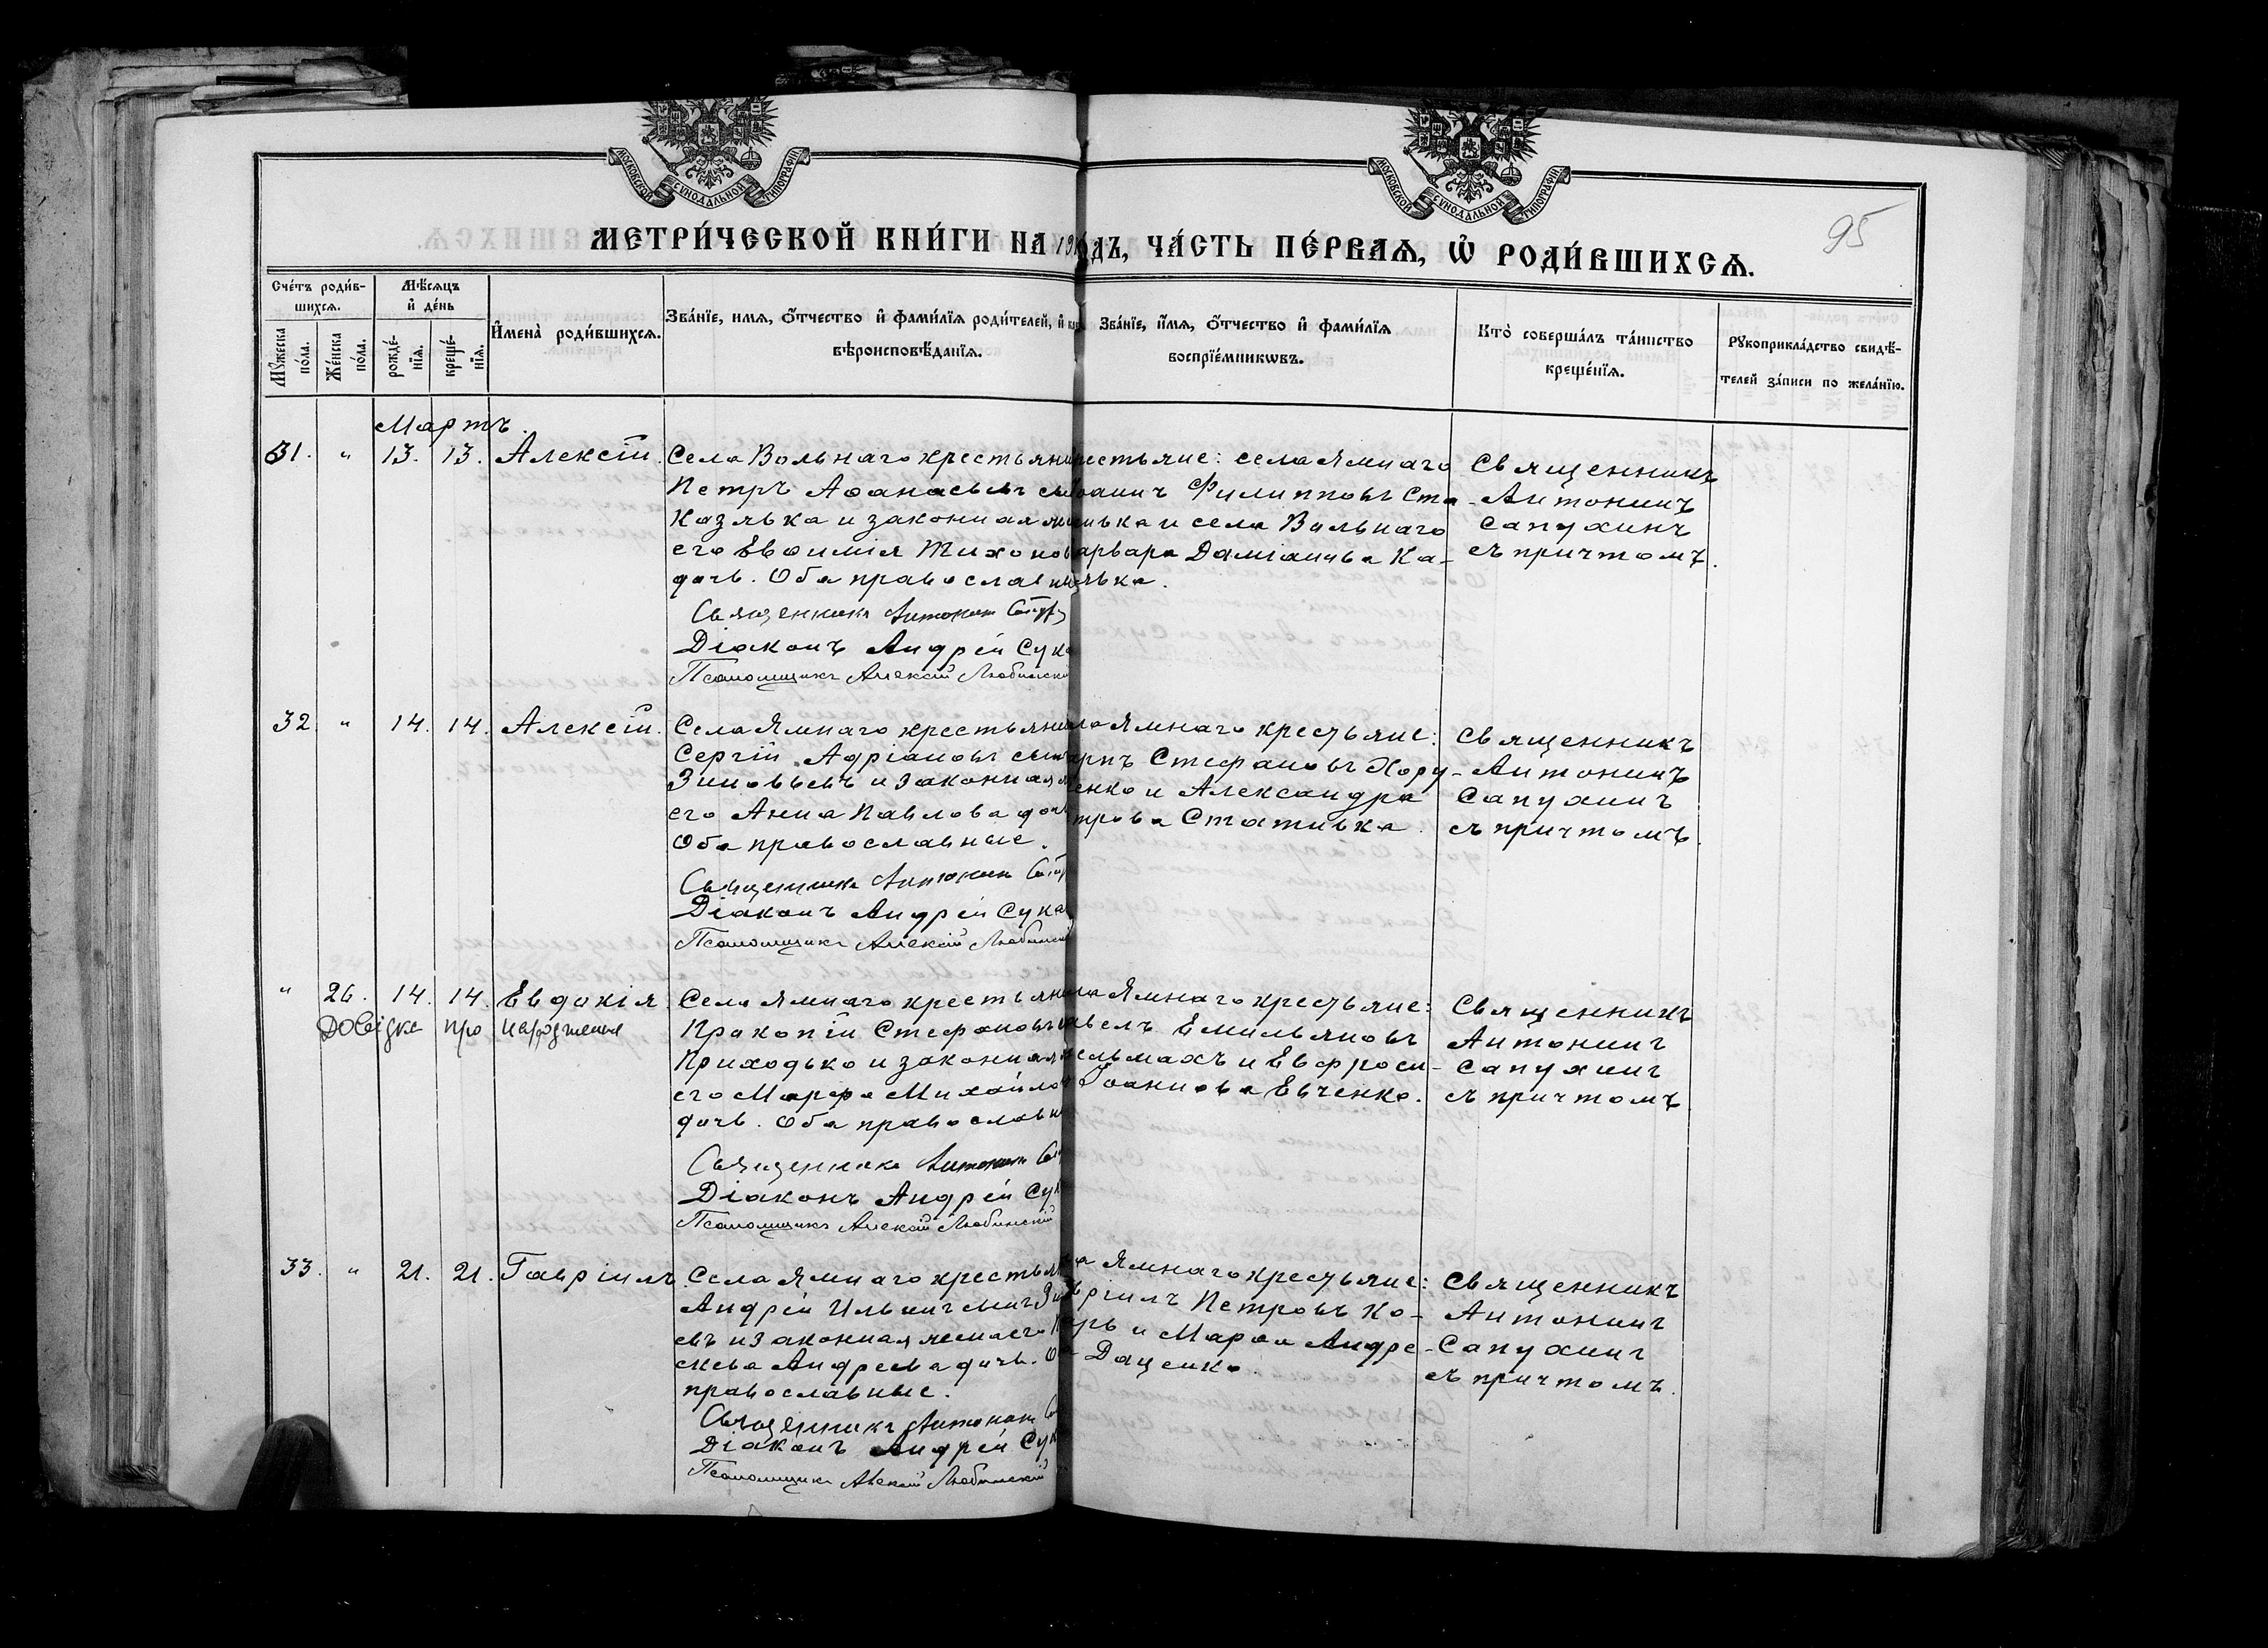 МОСКОВСКОЙ СѴНОДАЛЬНОЙ ТИПОГРАФІИ
МОСКОВСКОЙ СѴНОДАЛЬНОЙ ТИПОГРАФІИ
95
МЕТРИ́ЧЕСКОЙ КНИ́ГИ НА 19 ГО́ДЪ, ЧА́СТЬ ПЕ́РВАѦ, Ѽ РОДИ́ВШИХСѦ.
Сче́тъ роди́в-
шихсѧ.
Мꙋ́жеска по́ла.
Же́нска по́ла.
Мѣ́сѧцъ
и҆ де́нь
рожде́-
нїѧ.
креще́-
нїѧ.
И҆мена̀ роди́вшихсѧ.
Зва́нїе, имѧ, ѻ҆́тчество и҆ фами́лїѧ роди́телей, и҆
вѣроисповѣ́данїѧ.
Зва́нїе, и҆́мѧ, ѻ҆́тчество и҆ фами́лїѧ
воспрїе́мникѡвъ.
Кто̀ соверша́лъ та́инство
креще́нїѧ.
Рꙋкоприкла́дство свидѣ́-
телей за́писи по жела́нїю.
Мартъ.
31. " 13. 13. Алексій.
Села Вольнаго крестьяни
Петръ Аѳанасьевъ сынъ
Козявка и законная жена
его Евѳимія Тихонов
дочь. Оба православны
Священникъ Антонин
Діаконъ Андрей Сука
Псаломщикъ Алексій Любинскій
рестьяне: села Ямнаго
Іоаннъ Филипповъ Ста-
тивка и села Вольнаго
арвара Даміанова Ка-
зявка.
Священникъ
Антонинъ
Сапухинъ
съ причтомъ.
32. " 14. 14. Алексій.
Села Ямнаго крестьянин
Сергій Адріановъ сынъ
Зиновьевъ и законная
его Анна Павлова дочь
Оба православные.
Священникъ Антонин
Діаконъ Андрей Сука
Псаломщикъ Алексій Любинскій
ла Ямнаго крестьяне:
арпъ Стефановъ Хору-
женко и Александра
трова Стативка.
Священникъ
Антонинъ
Сапухинъ
съ причтомъ.
" 26. 14. 14. Евдокія
Довідка про народження
Села Ямнаго крестьяни
Прокопій Стефановъ
Приходько и законная
его Марфа Михайлов
дочь. Оба православн
Священникъ Антонин
Діаконъ Андрей Сук
Псаломщикъ Алексій Любинскій
ла Ямнаго крестьяне:
авелъ Емильяновъ
ельмахъ и Евфроси-
Іоаннова Евченко.
Священникъ
Антонинъ
Сапухинъ
съ причтомъ
33. " 21. 21. Гавріилъ.
Села Ямнаго крестьян
Андрей Ильинъ
евъ и законная жена его
Андреева дочь. О
православные.
Священникъ Антонин
Діаконъ Андрей Сук
Псаломщикъ Алексій Любинскій
ла Ямнаго крестьяне:
вріилъ Петровъ Ко-
арь и Марѳа Андре-
Даценко.
Священникъ
Антонинъ
Сапухинъ
съ причтомъ.